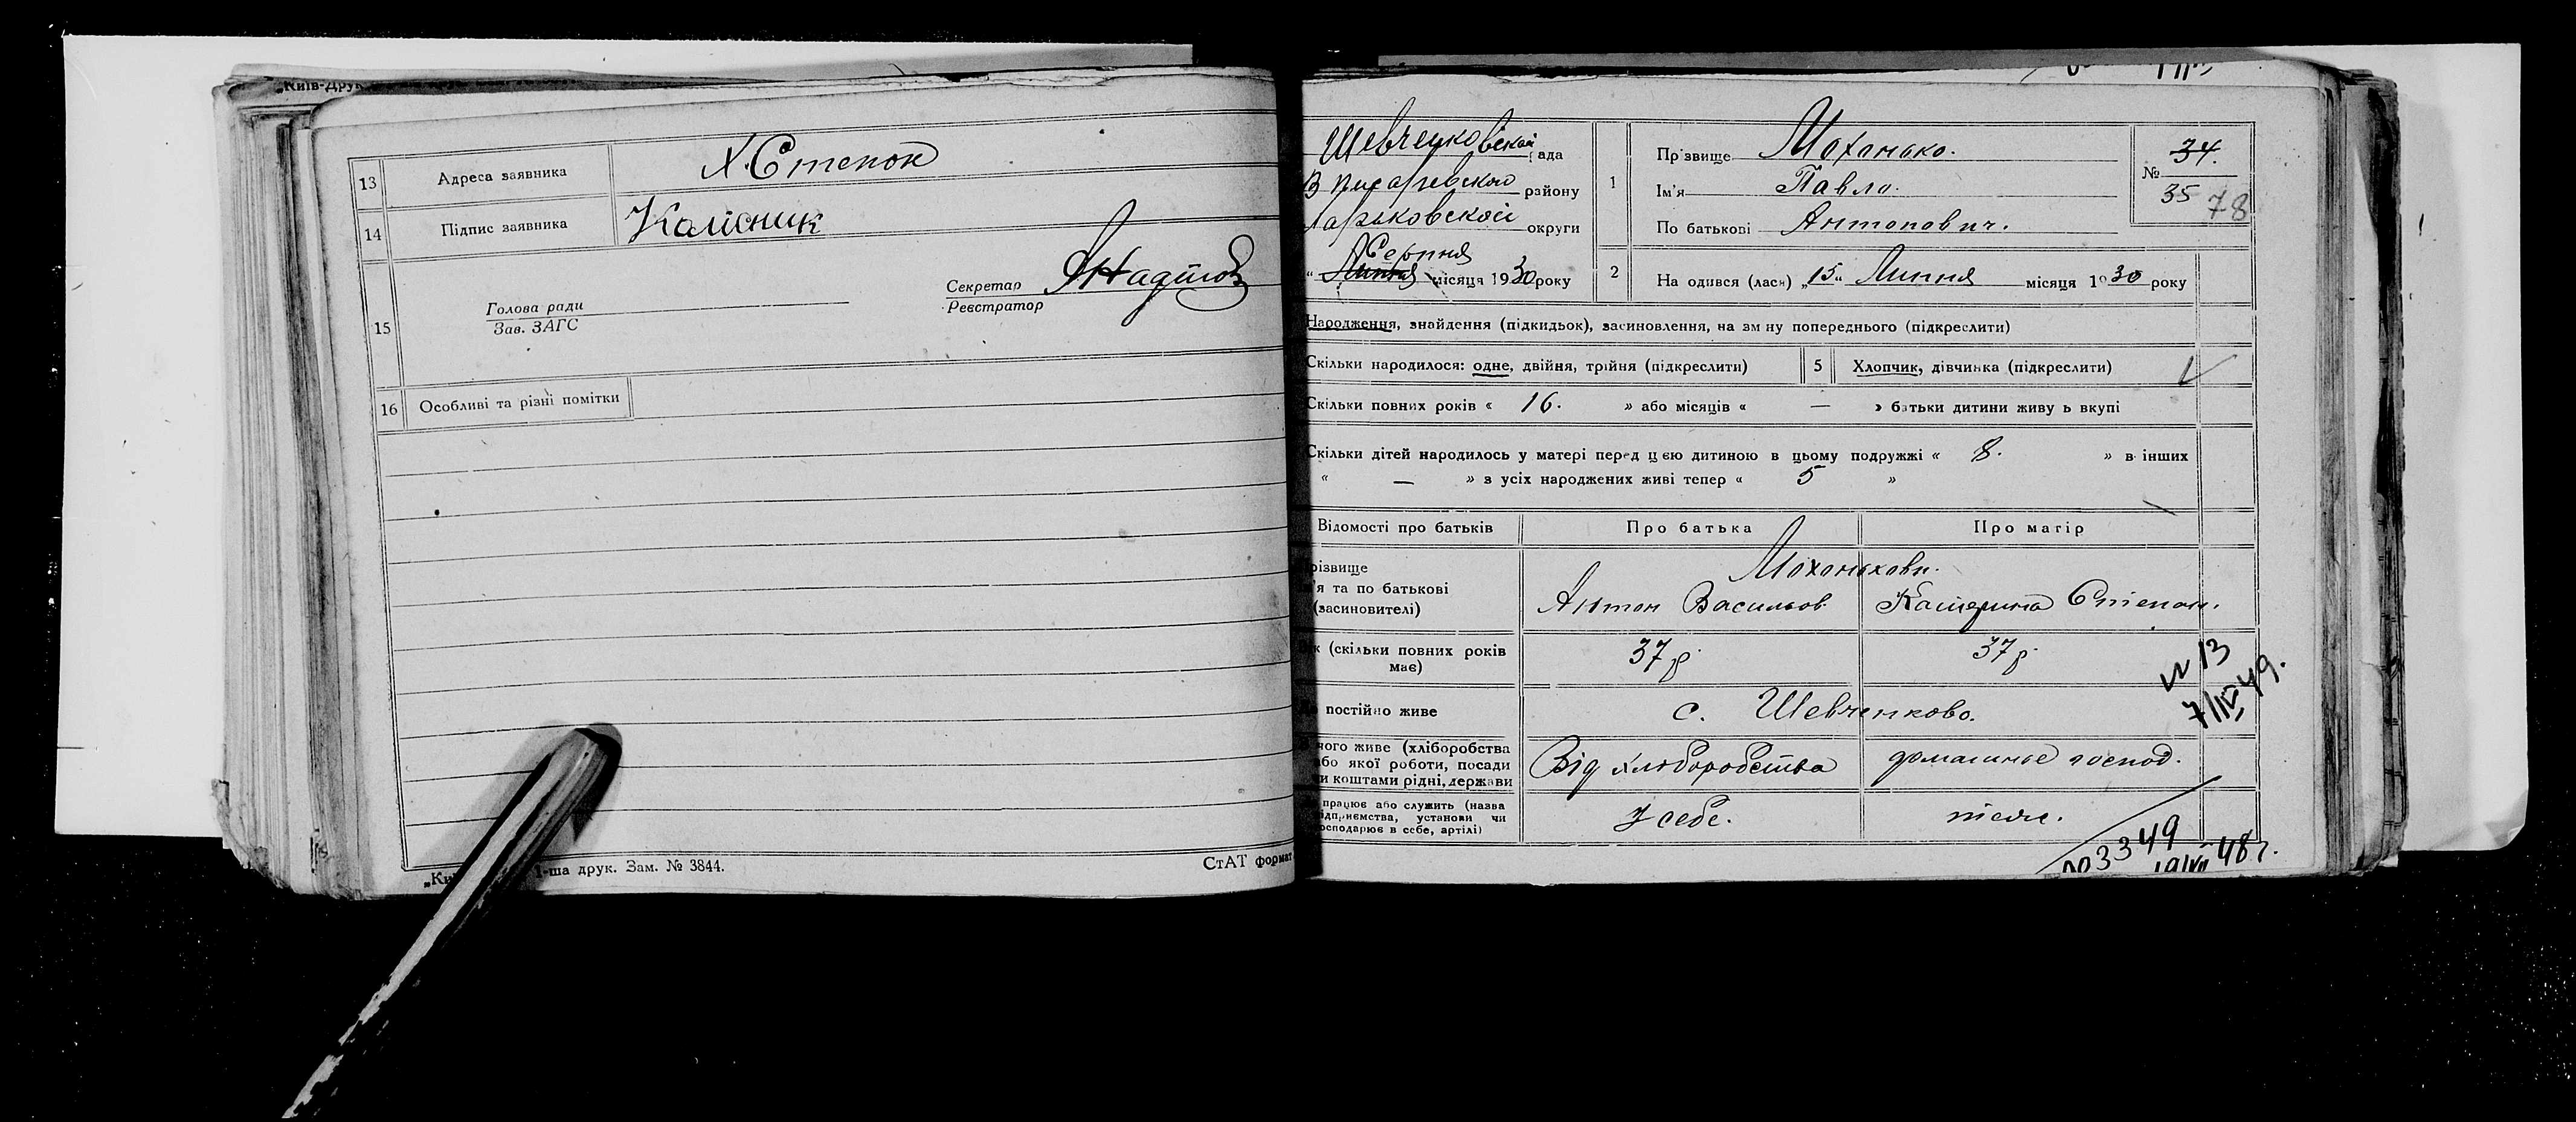 „Київ-Друк
13 Адреса заявника Х. Степок
14 Підпис заявника Колісник
15 Голова ради
Зав. ЗАГС
Секретар
Реєстратор
16 Особливі та різні помітки
1-ша друк. Зам. № 3844.
СтАТ формат
Шевченковской рада
району
округи
Серпня
Липня місяця 1930 року
1 Прізвище Мохонько.
Ім'я Павло.
По батькові Антонович.
34.
№
35 78
2 На одився (лась) „15" Липня місяця 1930 року
Народження, знайдення (підкидьок), засиновлення, на зм ну попереднього (підкреслити)
Скільки народилося: одне, двійня, трійня (підкреслити) 5 Хлопчик, дівчинка (підкреслити)
Скільки повних років « 16. » або місяців « — » батьки дитини живу ь вкупі
Скільки дітей народилось у матері перед цією дитиною в цьому подружжі « 8. » в інших
« — » з усіх народжених живі тепер « 5 »
Відомості про батьків Про батька Про матір
різвище Мохонькови.
'я та по батькові
(засиновителі) Антон Васильов. Катерина Степан.
к (скільки повних років
має) 37 р. 37 р.
постійно живе с. Шевченково.
чого живе (хліборобства
або якої роботи, посади
чи коштами рідні, держави Від хліборобства домашнє господ.
працює або служить (назва
ідприємства, установи чи
осподарює в себе, артілі) У себе. тієж.
N 13
7/IV 49.
003349
19/VI 48 г.